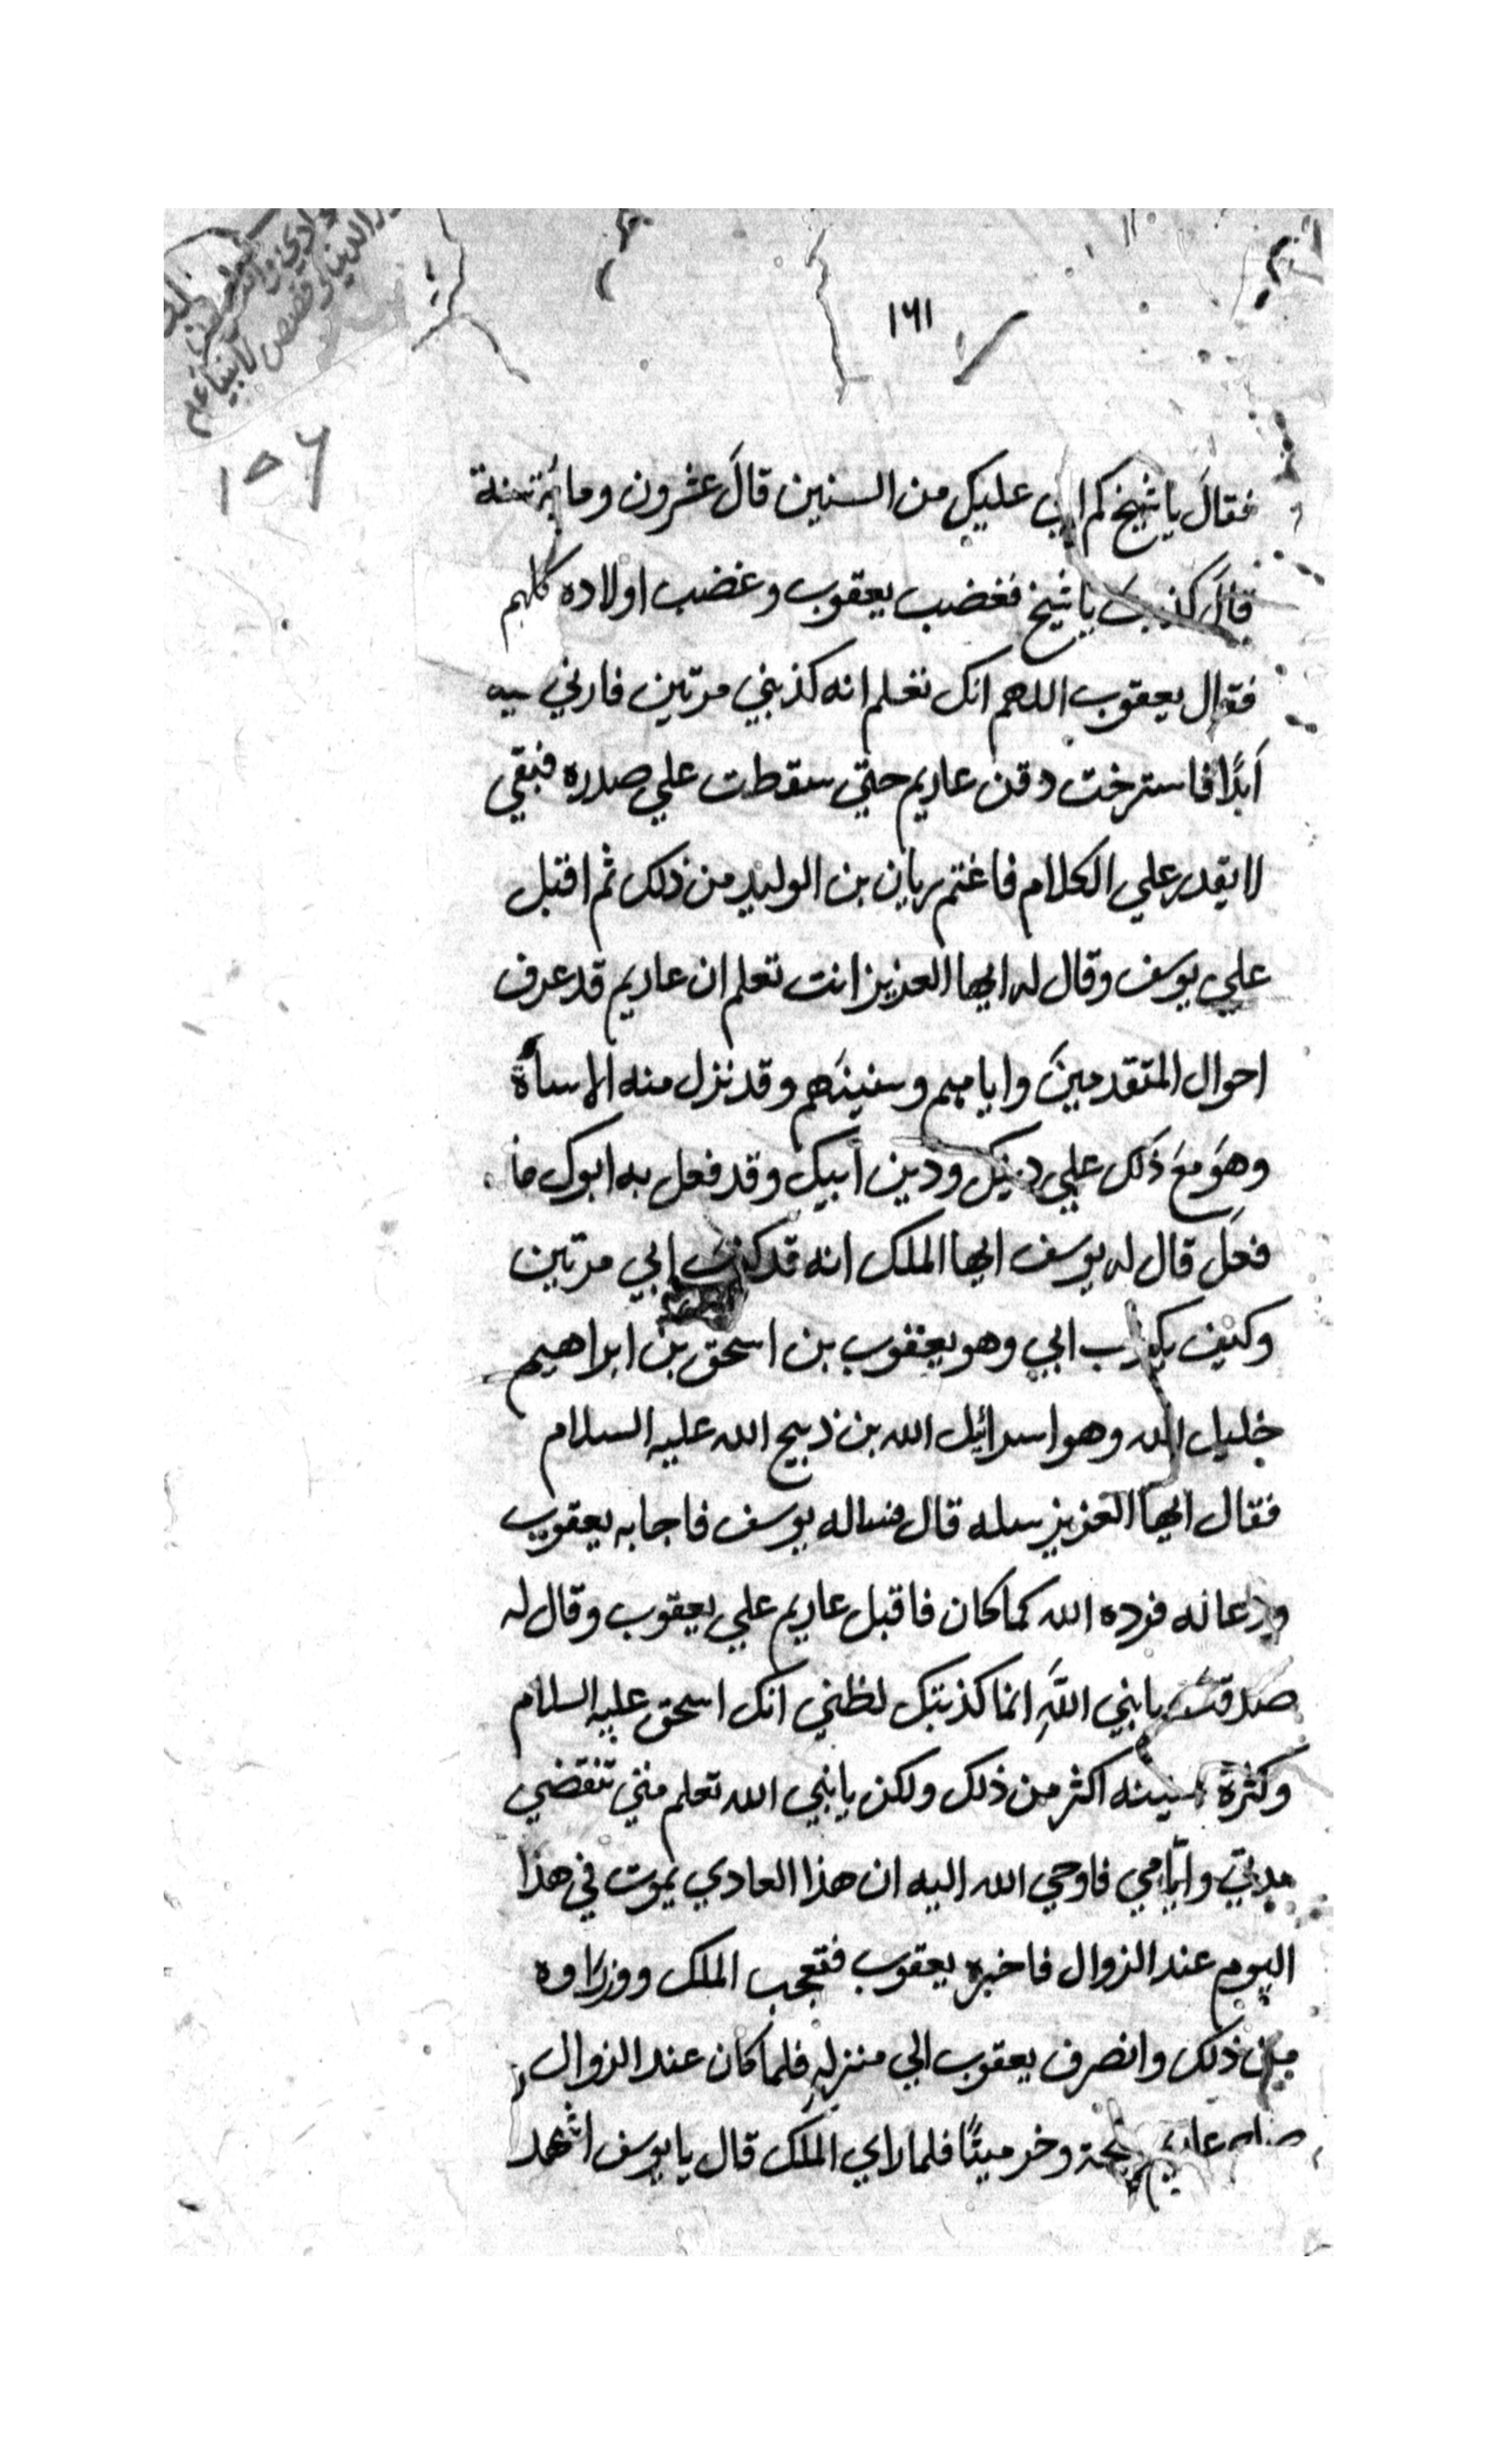 ١٦١
١٥٦
قصص الانبياء عم
فقالَ يا شيخ كم اتي عليك من السنين قالَ عشرون ومائة سنة
قالَ كذبتَ يا شيخ فغضب يعقوب وغضب اولاده كلهم
فقال يعقوب اللهم انك تعلم انه كذبني مرتين فارني فيه
اَبدًا فاسترخت دقن عاديم حتي سقطت علي صدره فبقي
لا يقدر علي الكلام فاغتم ريان بن الوليد من ذلك ثم اقبل
علي يوسف وقال له ايها العزيز انت تعلم ان عاديم قد عرف
احوال المتقدمينَ وايامهم وسنينَهم وقد نزل منه الاساة
وهوَ معَ ذَلك علي دينك ودين اَبيك وقد فعل به ابوك ما
فعلَ قال له يوسف ايها الملك انه قد كذبَ ابي مرتين
وكيف يكذب ابي وهو يعقوب بن اسحق بن ابراهيم
خليل الله وهو اسرائيل الله بن ذبيح الله عليه السلام
فقال ايها العزيز سله قال فساله يوسف فاجابه يعقوب
ودعا له فرده الله كما كان فاقبل عاديم علي يعقوب وقال له
صدقتَ يا نبي اللَّهِ انما كذبتك لظني انك اسحق عليه السلام
وكثرة سنينه اكثر من ذلك ولكن يا نبي الله تعلم متي تنقضي
مدتي وايّامي فاوحي الله اليه ان هذا العادي يموت في هذا
اليوم عند الزوال فاخبره يعقوب فتعجب الملك ووزراوه
من ذلك وانصرف يعقوب الي منزلهِ فلما كان عند الزوال
صاح عاديم صيحة وخر ميتًا فلما راي الملك قال يا يوسف اشهد